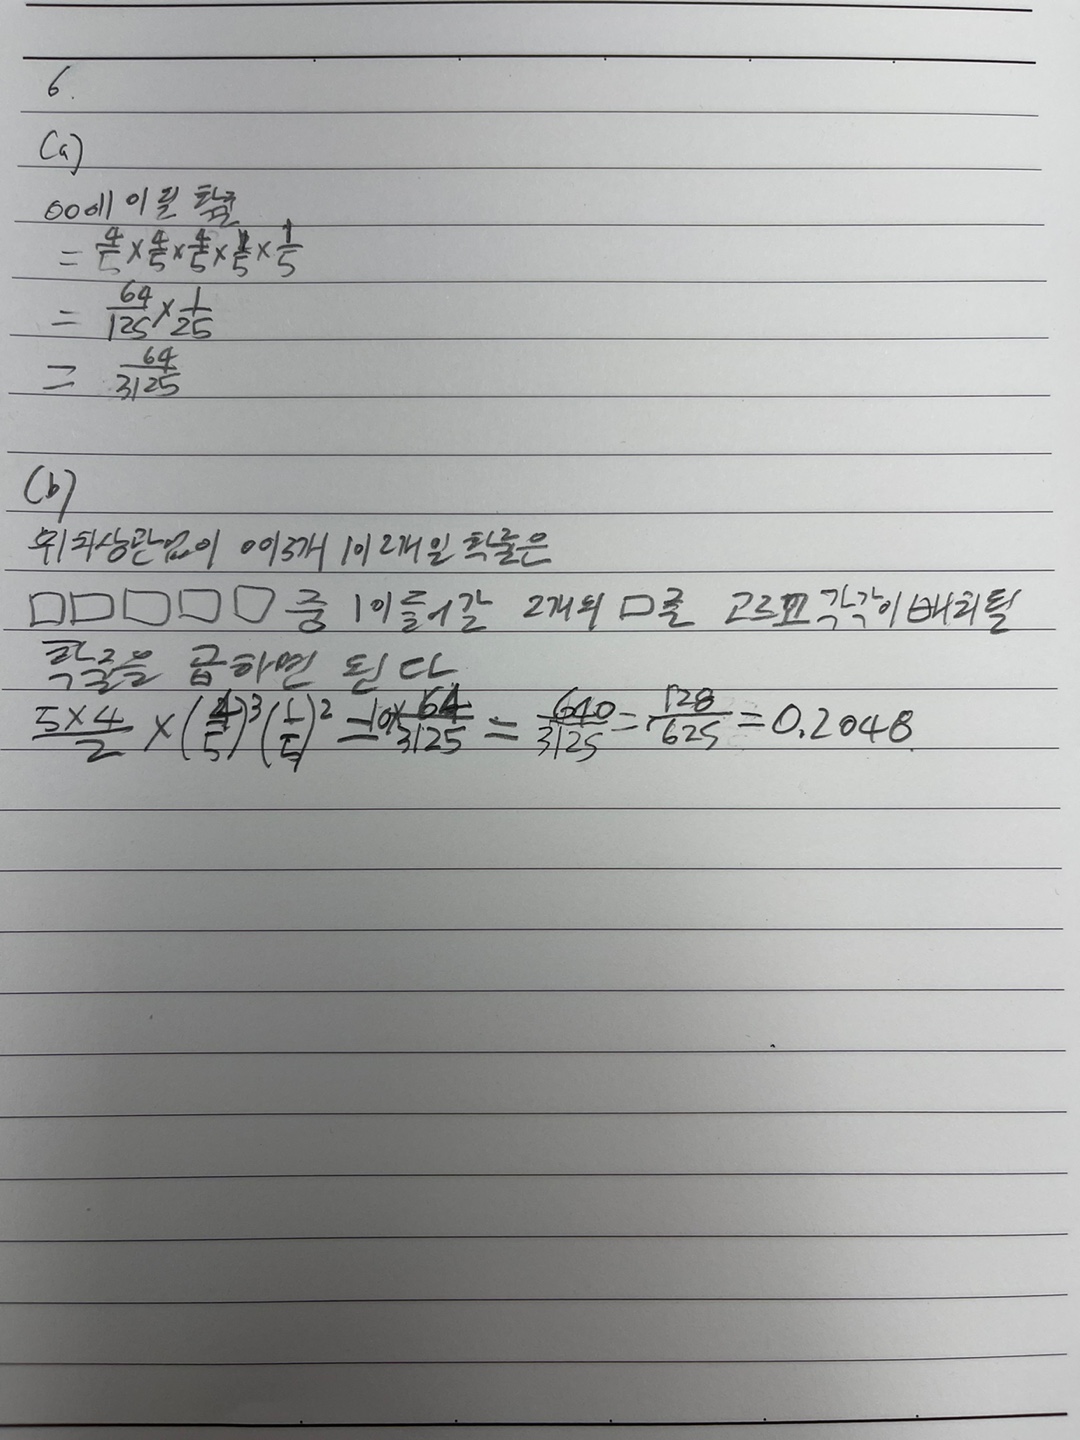 6.
(a)
00에 이를 확률
= 4/5 × 4/5 × 4/5 × 1/5 × 1/5
= 64/125 × 1/25
= 64/3125
(b)
위치상관없이 0이3개 1이2개일 확률은
□□□□□ 중 1이 들어갈 2개의 □를 고르고 각각이 배치될
확률을 곱하면 된다
5×4/2 × (4/5)³(1/5)² = 10× 64/3125 = 640/3125 = 128/625 = 0.2048